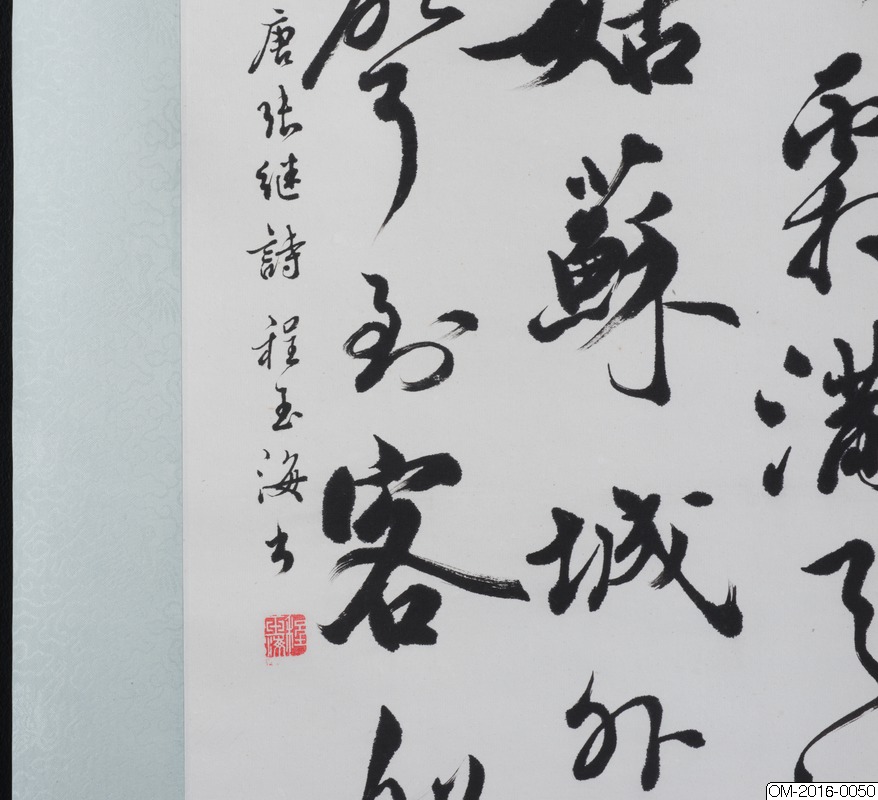 霜滿天
姑蘇城外
聲到客船
唐张继詩 程玉海书
OM-2016-0050